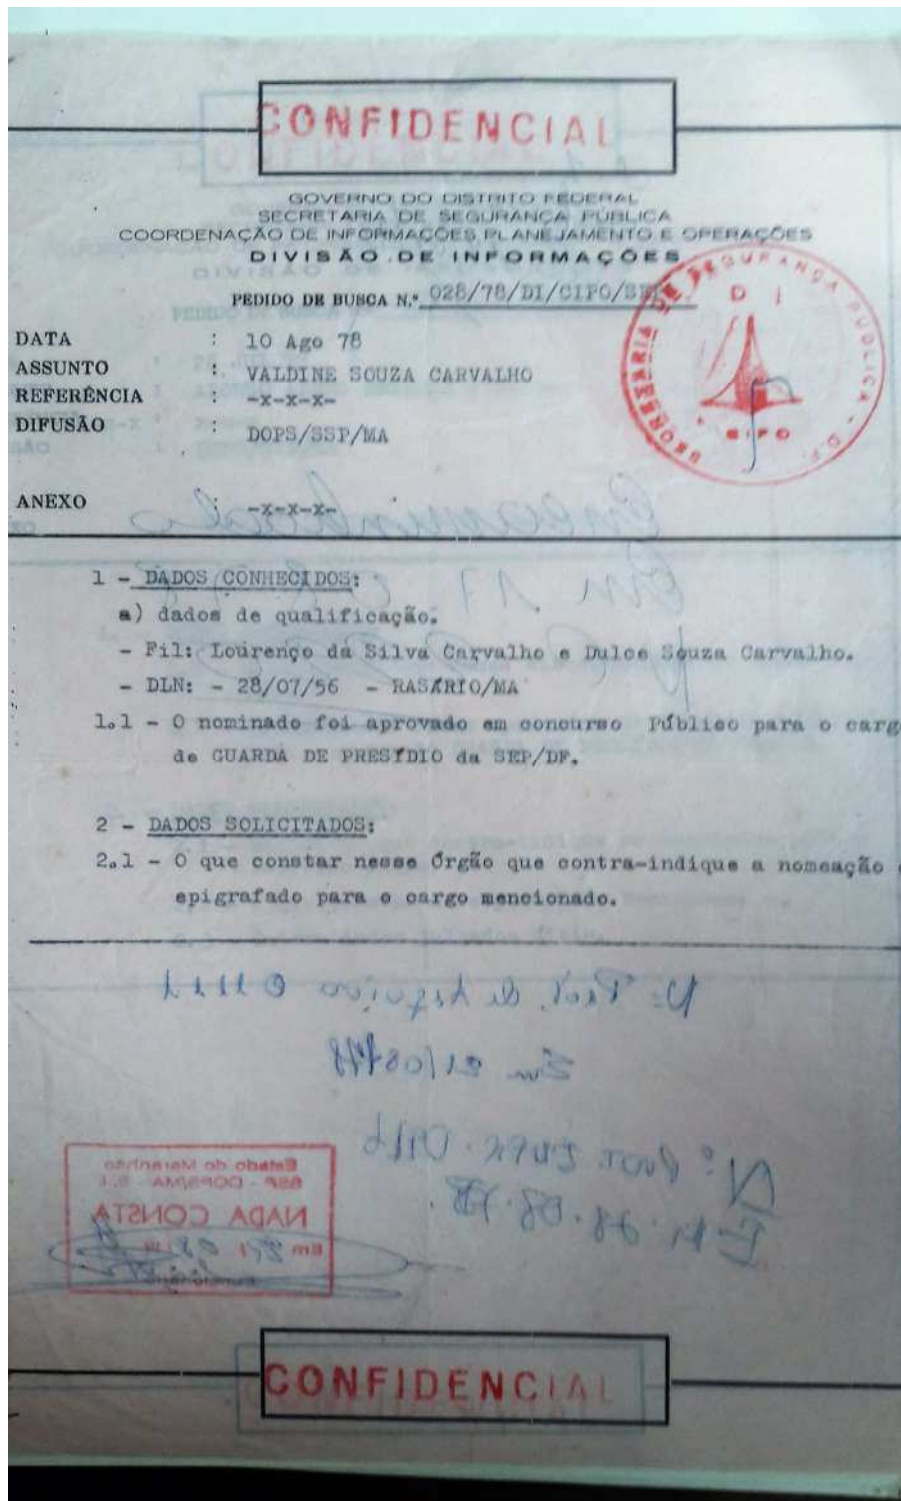 CONFIDENCIAL
GOVERNO DO DISTRITO FEDERAL
SECRETARIA DE SEGURANÇA PÚBLICA
COORDENAÇÃO DE INFORMAÇÕES PLANEJAMENTO E OPERAÇÕES
DIVISÃO DE INFORMAÇÕES
PEDIDO DE BUSCA N.º 028/78/DI/CIPO/SEP
SECRETARIA DE SEGURANÇA PÚBLICA - D.F.
D I
CIPO
DATA : 10 Ago 78
ASSUNTO : VALDINE SOUZA CARVALHO
REFERÊNCIA : -x-x-x-
DIFUSÃO : DOPS/SSP/MA
ANEXO : -x-x-x-
Encaminhado
Em 17
1 - DADOS CONHECIDOS:
a) dados de qualificação.
- Fil: Lourenço da Silva Carvalho e Dulce Souza Carvalho.
- DLN: - 28/07/56 - RASÁRIO/MA
1.1 - O nominado foi aprovado em concurso Público para o carg
de GUARDA DE PRESÍDIO da SEP/DF.
2 - DADOS SOLICITADOS:
2.1 - O que constar nesse Órgão que contra-indique a nomeação
epigrafado para o cargo mencionado.
Nº Prot. de Arquivo 01111
Em 21/08/78
Nº Prot.
Em. 28.08.78.
Estado do Maranhão
SSP - DOPS/MA - S.I.
NADA CONSTA
Em
Funcionário
CONFIDENCIAL